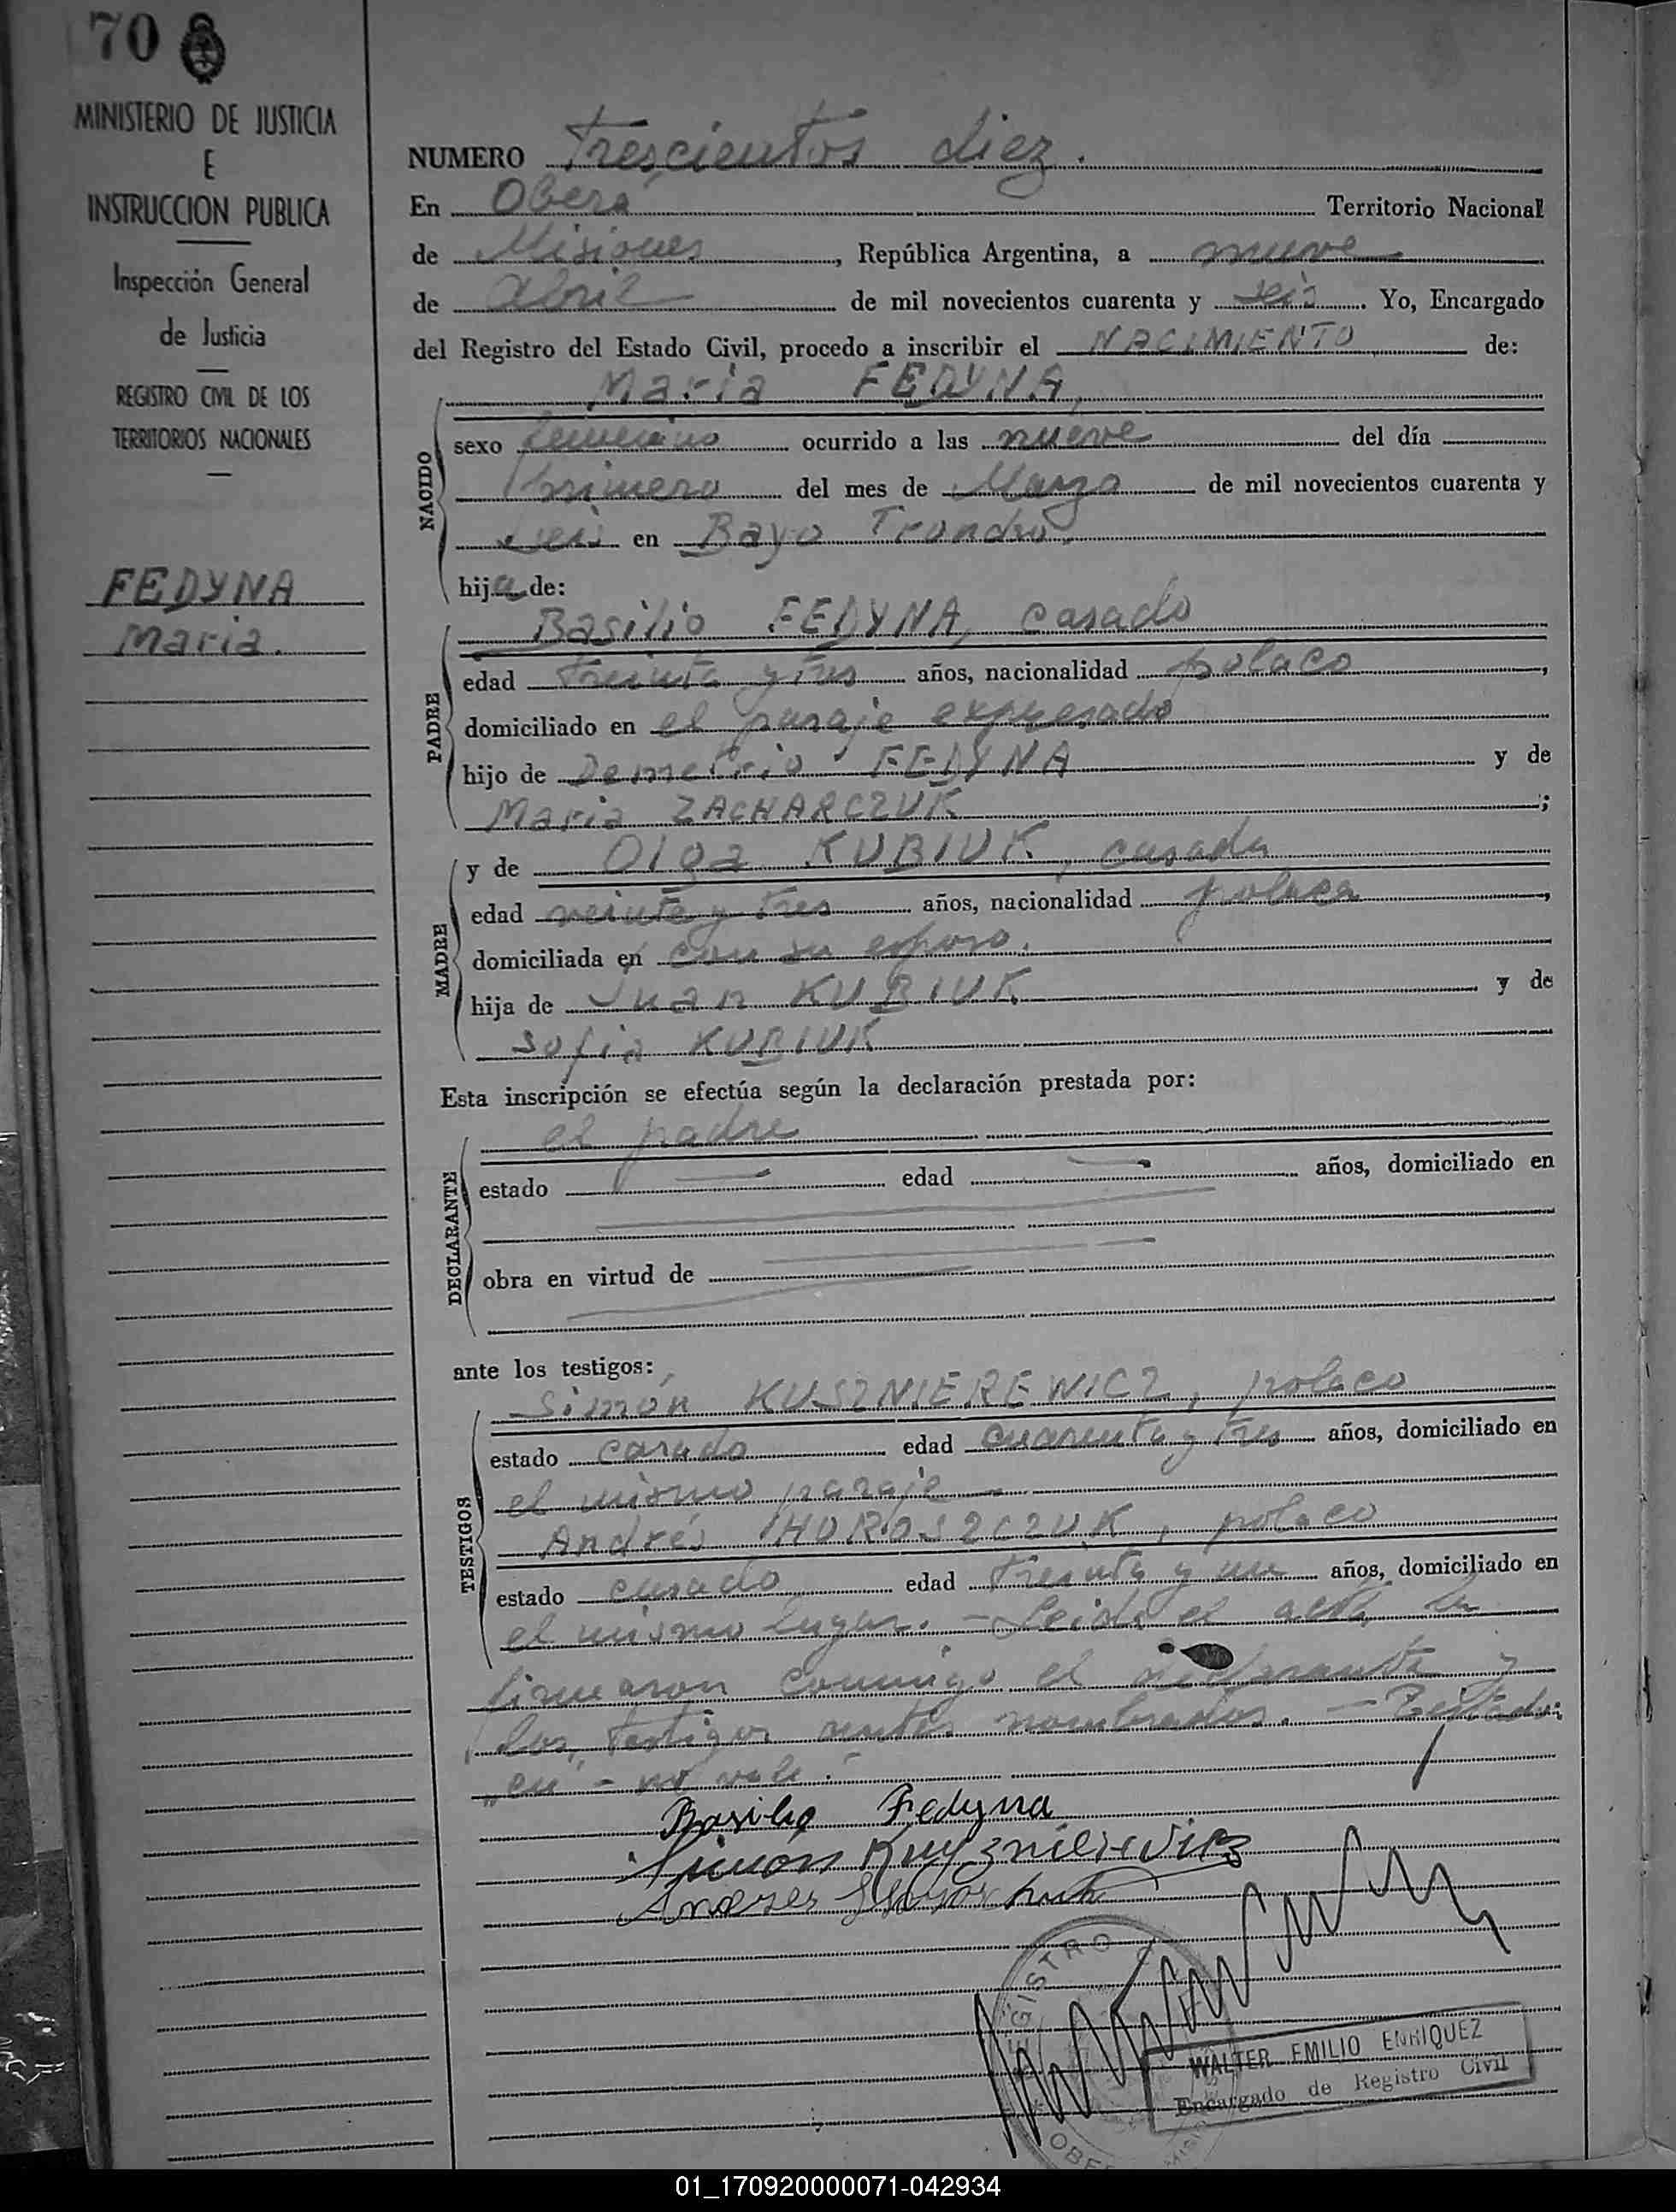 70
MINISTERIO DE JUSTICIA
E
INSTRUCCION PUBLICA
Inspección General
de Justicia
REGISTRO CIVIL DE LOS
TERRITORIOS NACIONALES
FEDYNA
Maria.
NUMERO Trescientos diez.
En Oberá Territorio Nacional
de Misiones, República Argentina, a nueve
de Abril de mil novecientos cuarenta y seis. Yo, Encargado
del Registro del Estado Civil, procedo a inscribir el NACIMIENTO de:
NACIDO
Maria FEDYNA,
sexo femenino ocurrido a las nueve del día
primero del mes de Marzo de mil novecientos cuarenta y
seis en Bayo Troncho.
hija de:
PADRE
Basilio FEDYNA, casado
edad treinta y tres años, nacionalidad polaco,
domiciliado en el paraje expresado
hijo de Demetrio FEDYNA y de
Maria ZACHARCZUK;
MADRE
y de Olga KUBIUK, casada
edad veinte y tres años, nacionalidad polaca,
domiciliada en con su esposo.
hija de Juan KUBIUK y de
Sofia KUBIUK
Esta inscripción se efectúa según la declaración prestada por:
DECLARANTE
el padre
estado edad años, domiciliado en
obra en virtud de
ante los testigos:
TESTIGOS
Simón KUSZNIEREWICZ, polaco
estado casado edad cuarenta y tres años, domiciliado en
el mismo paraje
Andrés HOROSZCZUK, polaco
estado casado edad treinta y un años, domiciliado en
el mismo lugar. - Leida el acta la
firmaron conmigo el declarante y
los testigos antes nombrados. - Testado:
"en" - no vale.
Basilio Fedyna
Simon
REGISTRO
WALTER EMILIO ENRIQUEZ
Encargado de Registro Civil
01_170920000071-042934